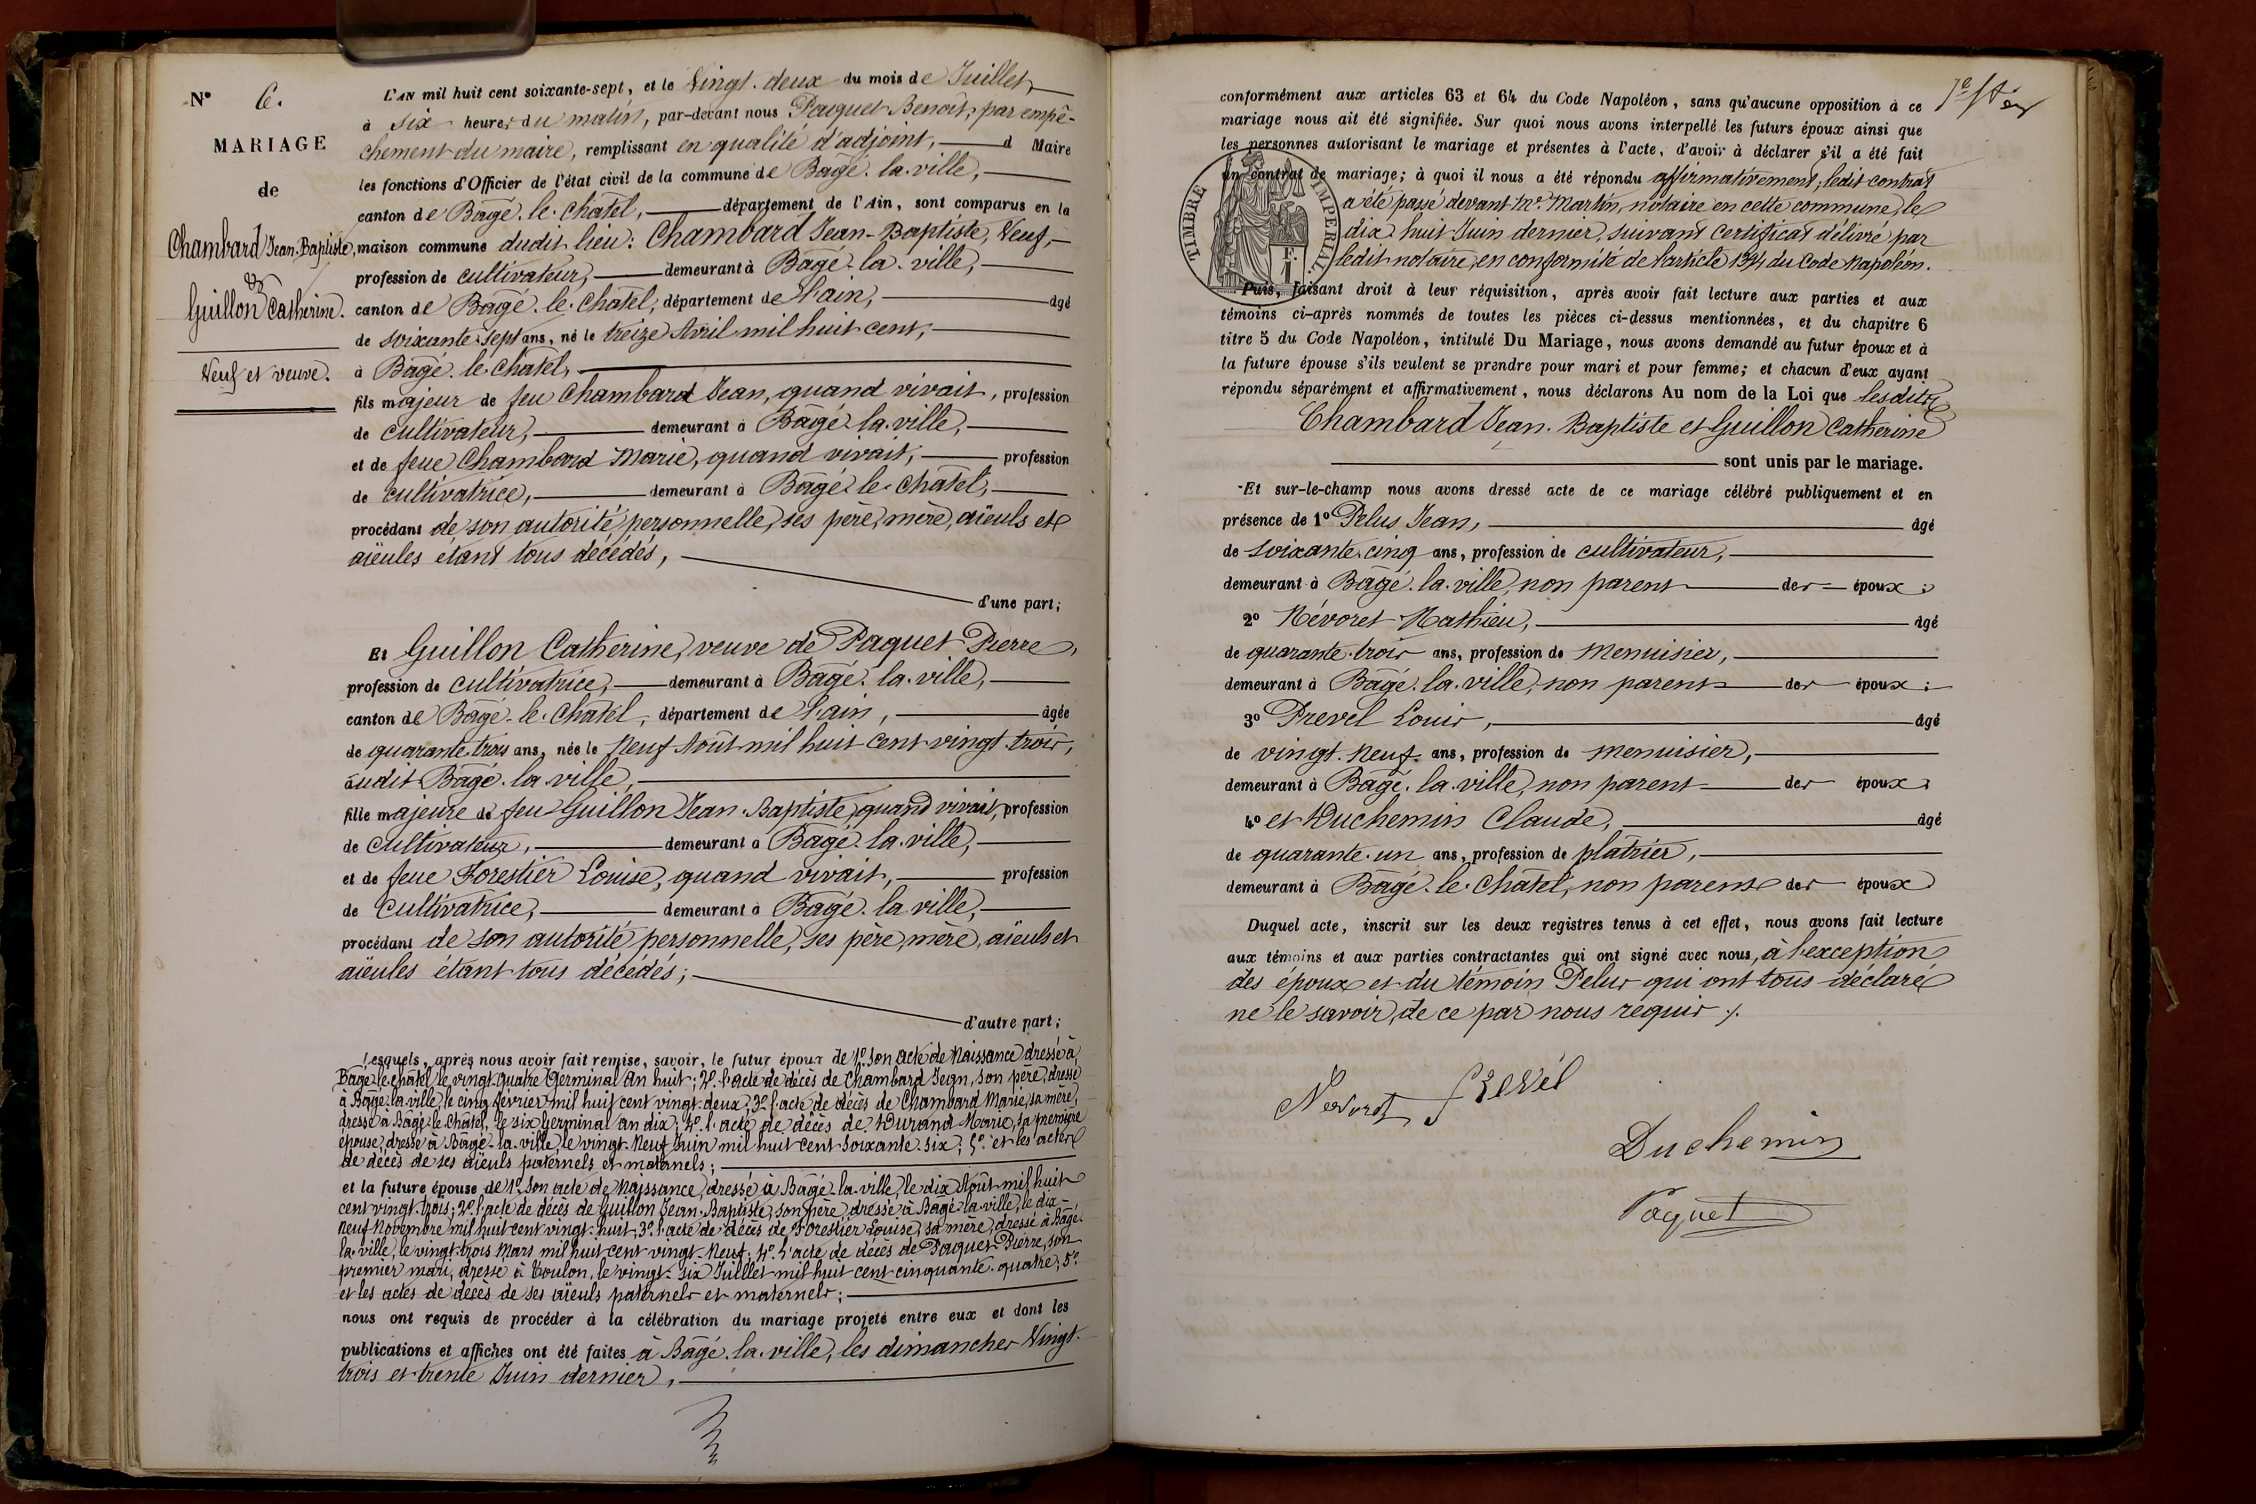 N° 6.
MARIAGE
de
Chambard Jean-Baptiste,
&
Guillon Catherine.
Veuf et veuve.
L'AN mil huit cent soixante-sept, et le Vingt-deux du mois de Juillet,
à six heures du matin, par-devant nous Paquet Benoît, par empê-
chement du maire, remplissant en qualité d'adjoint, d Maire
les fonctions d'Officier de l'état civil de la commune de Bâgé-la-ville,
canton de Bâgé-le-Châtel, département de l'Ain, sont comparus en la
maison commune dudit lieu: Chambard Jean-Baptiste, Veuf,
profession de cultivateur, demeurant à Bâgé-la-ville,
canton de Bâgé-le-Châtel, département de l'ain, âgé
de soixante-sept ans, né le treize Avril mil huit cent,
à Bâgé-le-Châtel,
fils majeur de feu Chambard Jean, quand vivait, profession
de cultivateur, demeurant à Bâgé-la-ville,
et de feue Chambard Marie, quand vivait, profession
de cultivatrice, demeurant à Bâgé-le-Châtel,
procédant de son autorité personnelle, ses père, mère, aïeuls et
aïeules étant tous décédés,
d'une part;
Et Guillon Catherine, veuve de Paquet Pierre,
profession de cultivatrice, demeurant à Bâgé-la-ville,
canton de Bâgé-le-Châtel, département de l'ain, âgée
de quarante-trois ans, née le Neuf Août mil huit cent vingt-trois,
audit Bâgé-la-ville,
fille majeure de feu Guillon Jean-Baptiste, quand vivait, profession
de cultivateur, demeurant à Bâgé-la-ville,
et de feue Forestier Louise, quand vivait, profession
de Cultivatrice, demeurant à Bâgé-la-ville,
procédant de son autorité personnelle, ses père, mère, aïeuls et
aïeules étant tous décédés;
d'autre part;
Lesquels, après nous avoir fait remise, savoir, le futur époux de 1° son acte de Naissance dressé à
Bâgé-le-Châtel le vingt-quatre Germinal an huit; 2° l'acte de décès de Chambard Jean, son père, dressé
à Bâgé-la-ville, le cinq février mil huit cent vingt-deux; 3° l'acte de décès de Chambard Marie, sa mère,
dressé à Bâgé-le-Châtel, le six Germinal an dix; 4° l'acte de décès de Durand Marie, sa première
épouse, dressé à Bâgé-la-ville, le vingt-Neuf Juin mil huit cent soixante-six; 5° et les actes
de décès de ses aïeuls paternels et maternels;
et la future épouse de 1° son acte de Naissance, dressé à Bâgé-la-ville, le dix Août mil huit
cent vingt-trois; 2° l'acte de décès de Guillon Jean-Baptiste, son père, dressé à Bâgé-la-ville, le dix-
neuf Novembre mil huit cent vingt-huit; 3° l'acte de décès de Forestier Louise, sa mère, dressé à Bâgé-
la-ville, le vingt-trois Mars mil huit cent vingt-Neuf; 4° l'acte de décès de Paquet Pierre, son
premier mari, dressé à Toulon, le vingt-six Juillet mil huit cent cinquante-quatre; 5°
et les actes de décès de ses aïeuls paternels et maternels;
nous ont requis de procéder à la célébration du mariage projeté entre eux et dont les
publications et affiches ont été faites à Bâgé-la-ville, les dimanches Vingt-
trois et trente Juin dernier,
conformément aux articles 63 et 64 du Code Napoléon, sans qu'aucune opposition à ce
mariage nous ait été signifiée. Sur quoi nous avons interpellé les futurs époux ainsi que
les personnes autorisant le mariage et présentes à l'acte, d'avoir à déclarer s'il a été fait
un contrat de mariage; à quoi il nous a été répondu affirmativement; ledit contrat
a été passé devant Me. Martin, notaire en cette commune, le
dix-huit Juin dernier, suivant certificat délivré par
ledit notaire, en conformité de l'article 1394 du Code Napoléon.
TIMBRE IMPERIAL
Puis, faisant droit à leur réquisition, après avoir fait lecture aux parties et aux
témoins ci-après nommés de toutes les pièces ci-dessus mentionnées, et du chapitre 6
titre 5 du Code Napoléon, intitulé Du Mariage, nous avons demandé au futur époux et à
la future épouse s'ils veulent se prendre pour mari et pour femme; et chacun d'eux ayant
répondu séparément et affirmativement, nous déclarons Au nom de la Loi que lesdits
Chambard Jean-Baptiste et Guillon Catherine
sont unis par le mariage.
Et sur-le-champ nous avons dressé acte de ce mariage célébré publiquement et en
présence de 1° Pelus Jean, âgé
de soixante-cinq ans, profession de cultivateur,
demeurant à Bâgé-la-ville, non parent des époux;
2° Névoret Mathieu, âgé
de quarante-trois ans, profession de Menuisier,
demeurant à Bâgé-la-ville, non parent des époux;
3° Prevel Louis, âgé
de vingt-Neuf ans, profession de menuisier,
demeurant à Bâgé-la-ville, non parent des époux;
4° et Duchemin Claude, âgé
de quarante-un ans, profession de plâtrier,
demeurant à Bâgé-le-Châtel, non parent des époux
Duquel acte, inscrit sur les deux registres tenus à cet effet, nous avons fait lecture
aux témoins et aux parties contractantes qui ont signé avec nous, à l'exception
des époux et du témoin Pelus qui ont tous déclaré
ne le savoir, de ce par nous requis ./.
Nevoret Prevél
Duchemin
Paquet